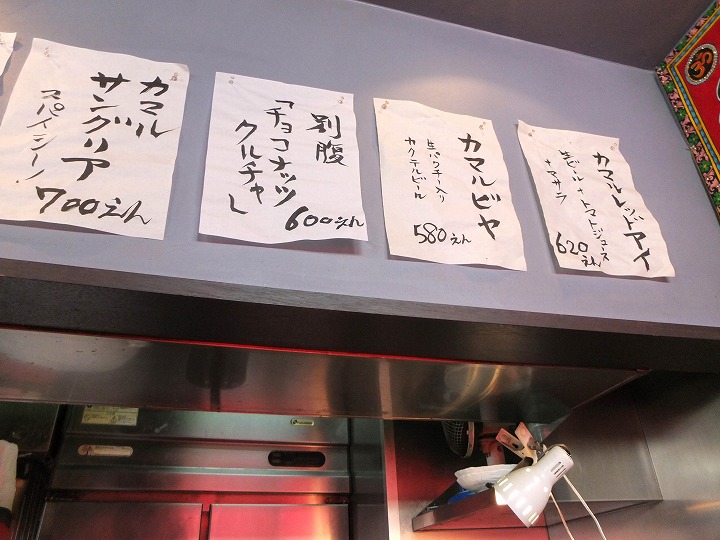 カマル
サングリア
スパイシー！
700えん
別腹
「チョコナッツ
クルチャ」
600えん
カマルビヤ
生パクチー入り
カクテルビール
580えん
カマルレッドアイ
生ビール+トマトジュース
+マサラ
620えん